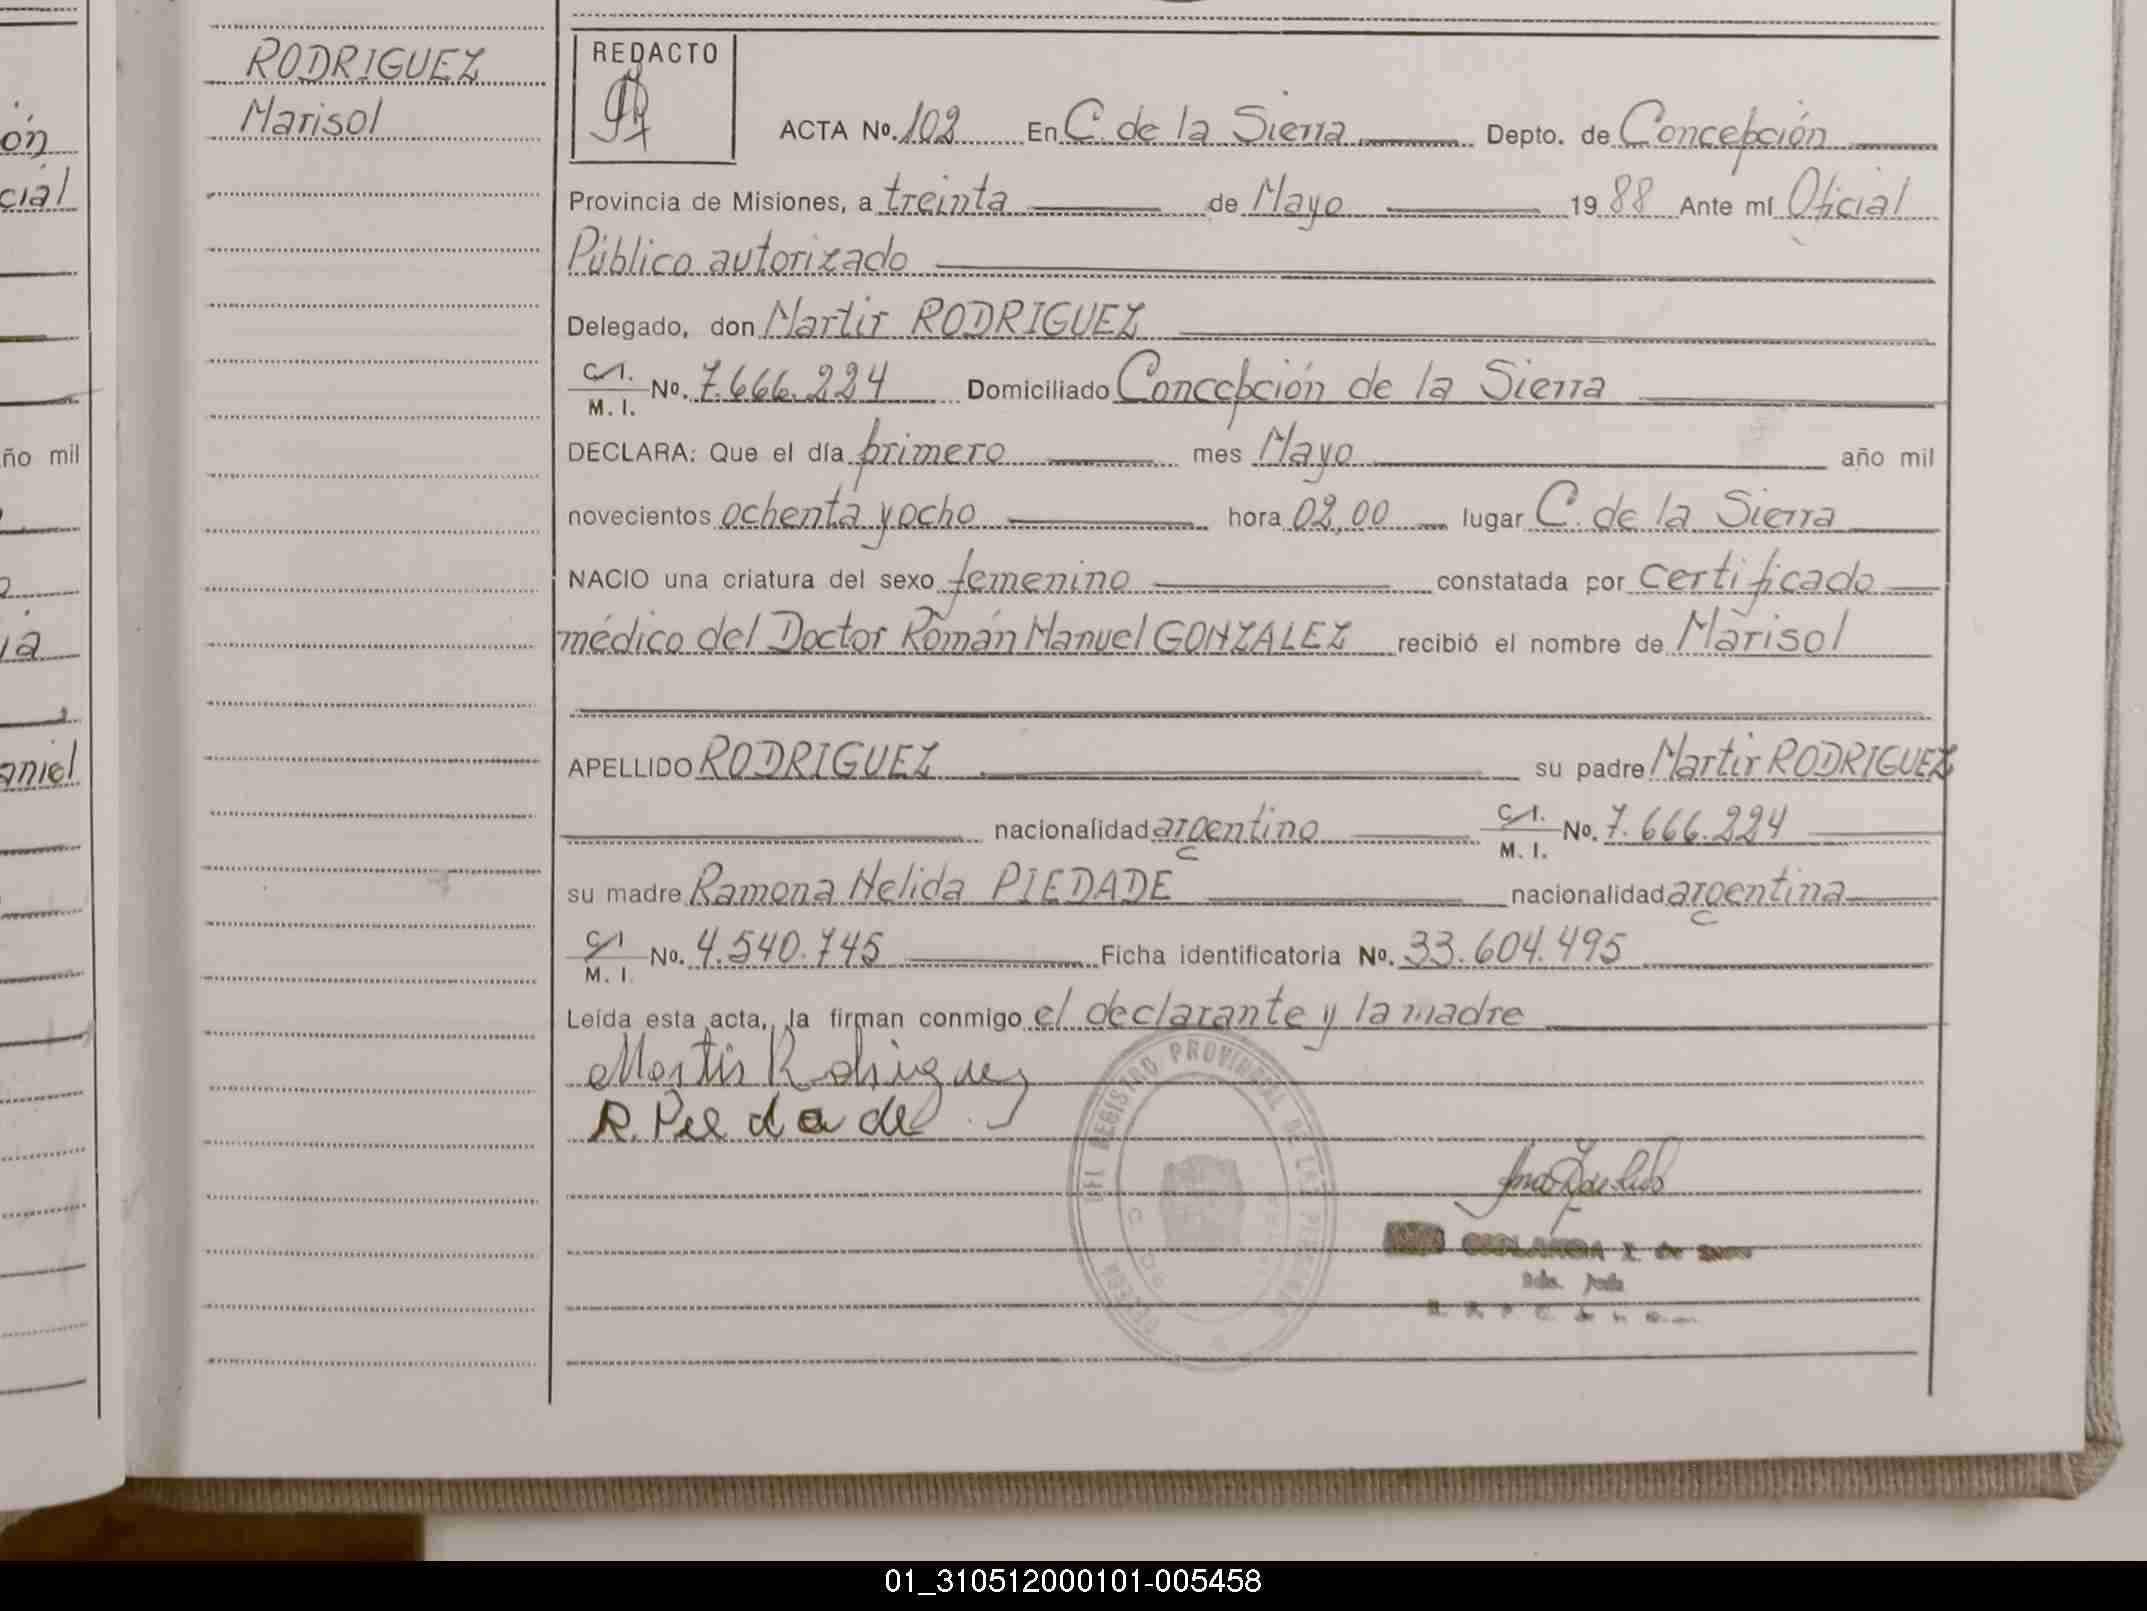 RODRIGUEZ
Marisol
REDACTO
ACTA No. 102 En C. de la Sierra Depto. de Concepción
Provincia de Misiones, a treinta de Mayo 19 88 Ante mí Oficial
Público autorizado
Delegado, don Martir RODRIGUEZ
C.I. M. I. No. 7.666.224 Domiciliado Concepción de la Sierra
DECLARA: Que el día primero mes Mayo año mil
novecientos ochenta y ocho hora 02,00 lugar C. de la Sierra
NACIO una criatura del sexo femenino constatada por certificado
médico del Doctor Román Manuel GONZALEZ recibió el nombre de Marisol
APELLIDO RODRIGUEZ su padre Martir RODRIGUEZ
nacionalidad argentino C.I. M. I. No. 7.666.224
su madre Ramona Nelida PIEDADE nacionalidad argentina
C.I. M. I. No. 4.540.745 Ficha identificatoria No. 33.604.495
Leída esta acta, la firman conmigo el declarante y la madre
Martir Rodriguez
R. Piedade
DEL REGISTRO PROVINCIAL DE LAS
ón
cial
ño mil
aniel
01_310512000101-005458